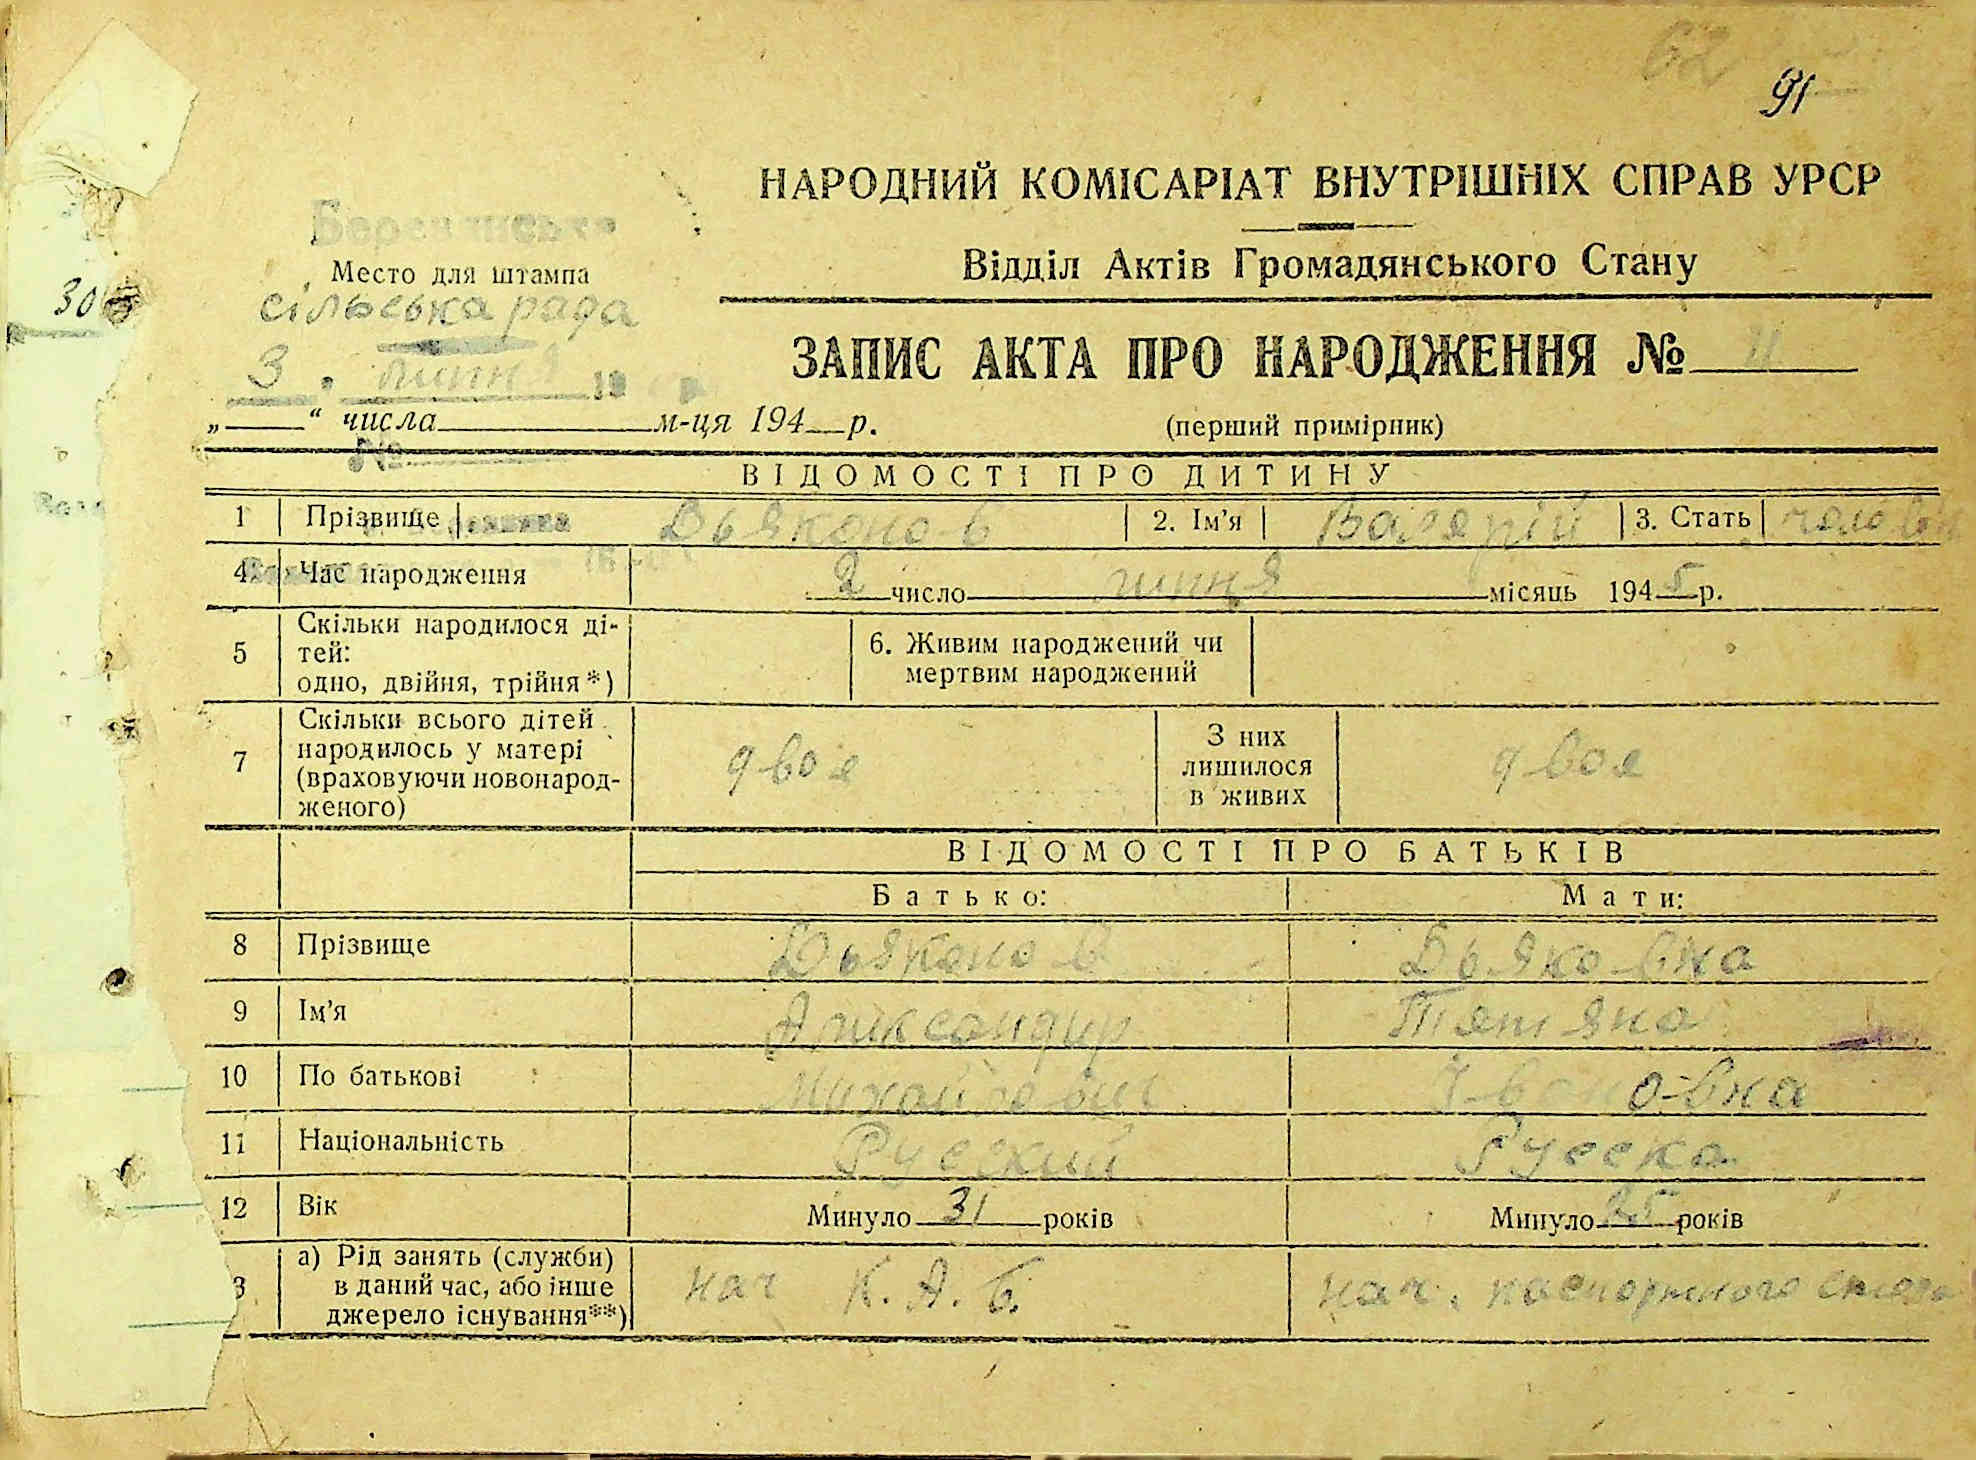 62
91
НАРОДНИЙ КОМІСАРІАТ ВНУТРІШНІХ СПРАВ УРСР
Відділ Актів Громадянського Стану
Место для штампа
сільська рада
30
ЗАПИС АКТА ПРО НАРОДЖЕННЯ № 11
3 липня 19
„ “ числа м-ця 194 р.
(перший примірник)
№
ВІДОМОСТІ ПРО ДИТИНУ
1 Прізвище Дьяконов 2. Ім'я Валерій 3. Стать
4 Час народження 2 число липня місяць 1945 р.
5 Скільки народилося ді-
тей:
одно, двійня, трійня *)
6. Живим народжений чи
мертвим народжений
7 Скільки всього дітей
народилось у матері
(враховуючи новонарод-
женого)
двоя
З них
лишилося
в живих
двоя
ВІДОМОСТІ ПРО БАТЬКІВ
Батько: Мати:
8 Прізвище Дьяконов Дьяковна
9 Ім'я Тятяна
10 По батькові Михайлович Івановна
11 Національність Русский Русска
12 Вік Минуло 31 років Минуло 25 років
3 а) Рід занять (служби)
в даний час, або інше
джерело існування**)
нач К. А. Б. нач. паспортного стола